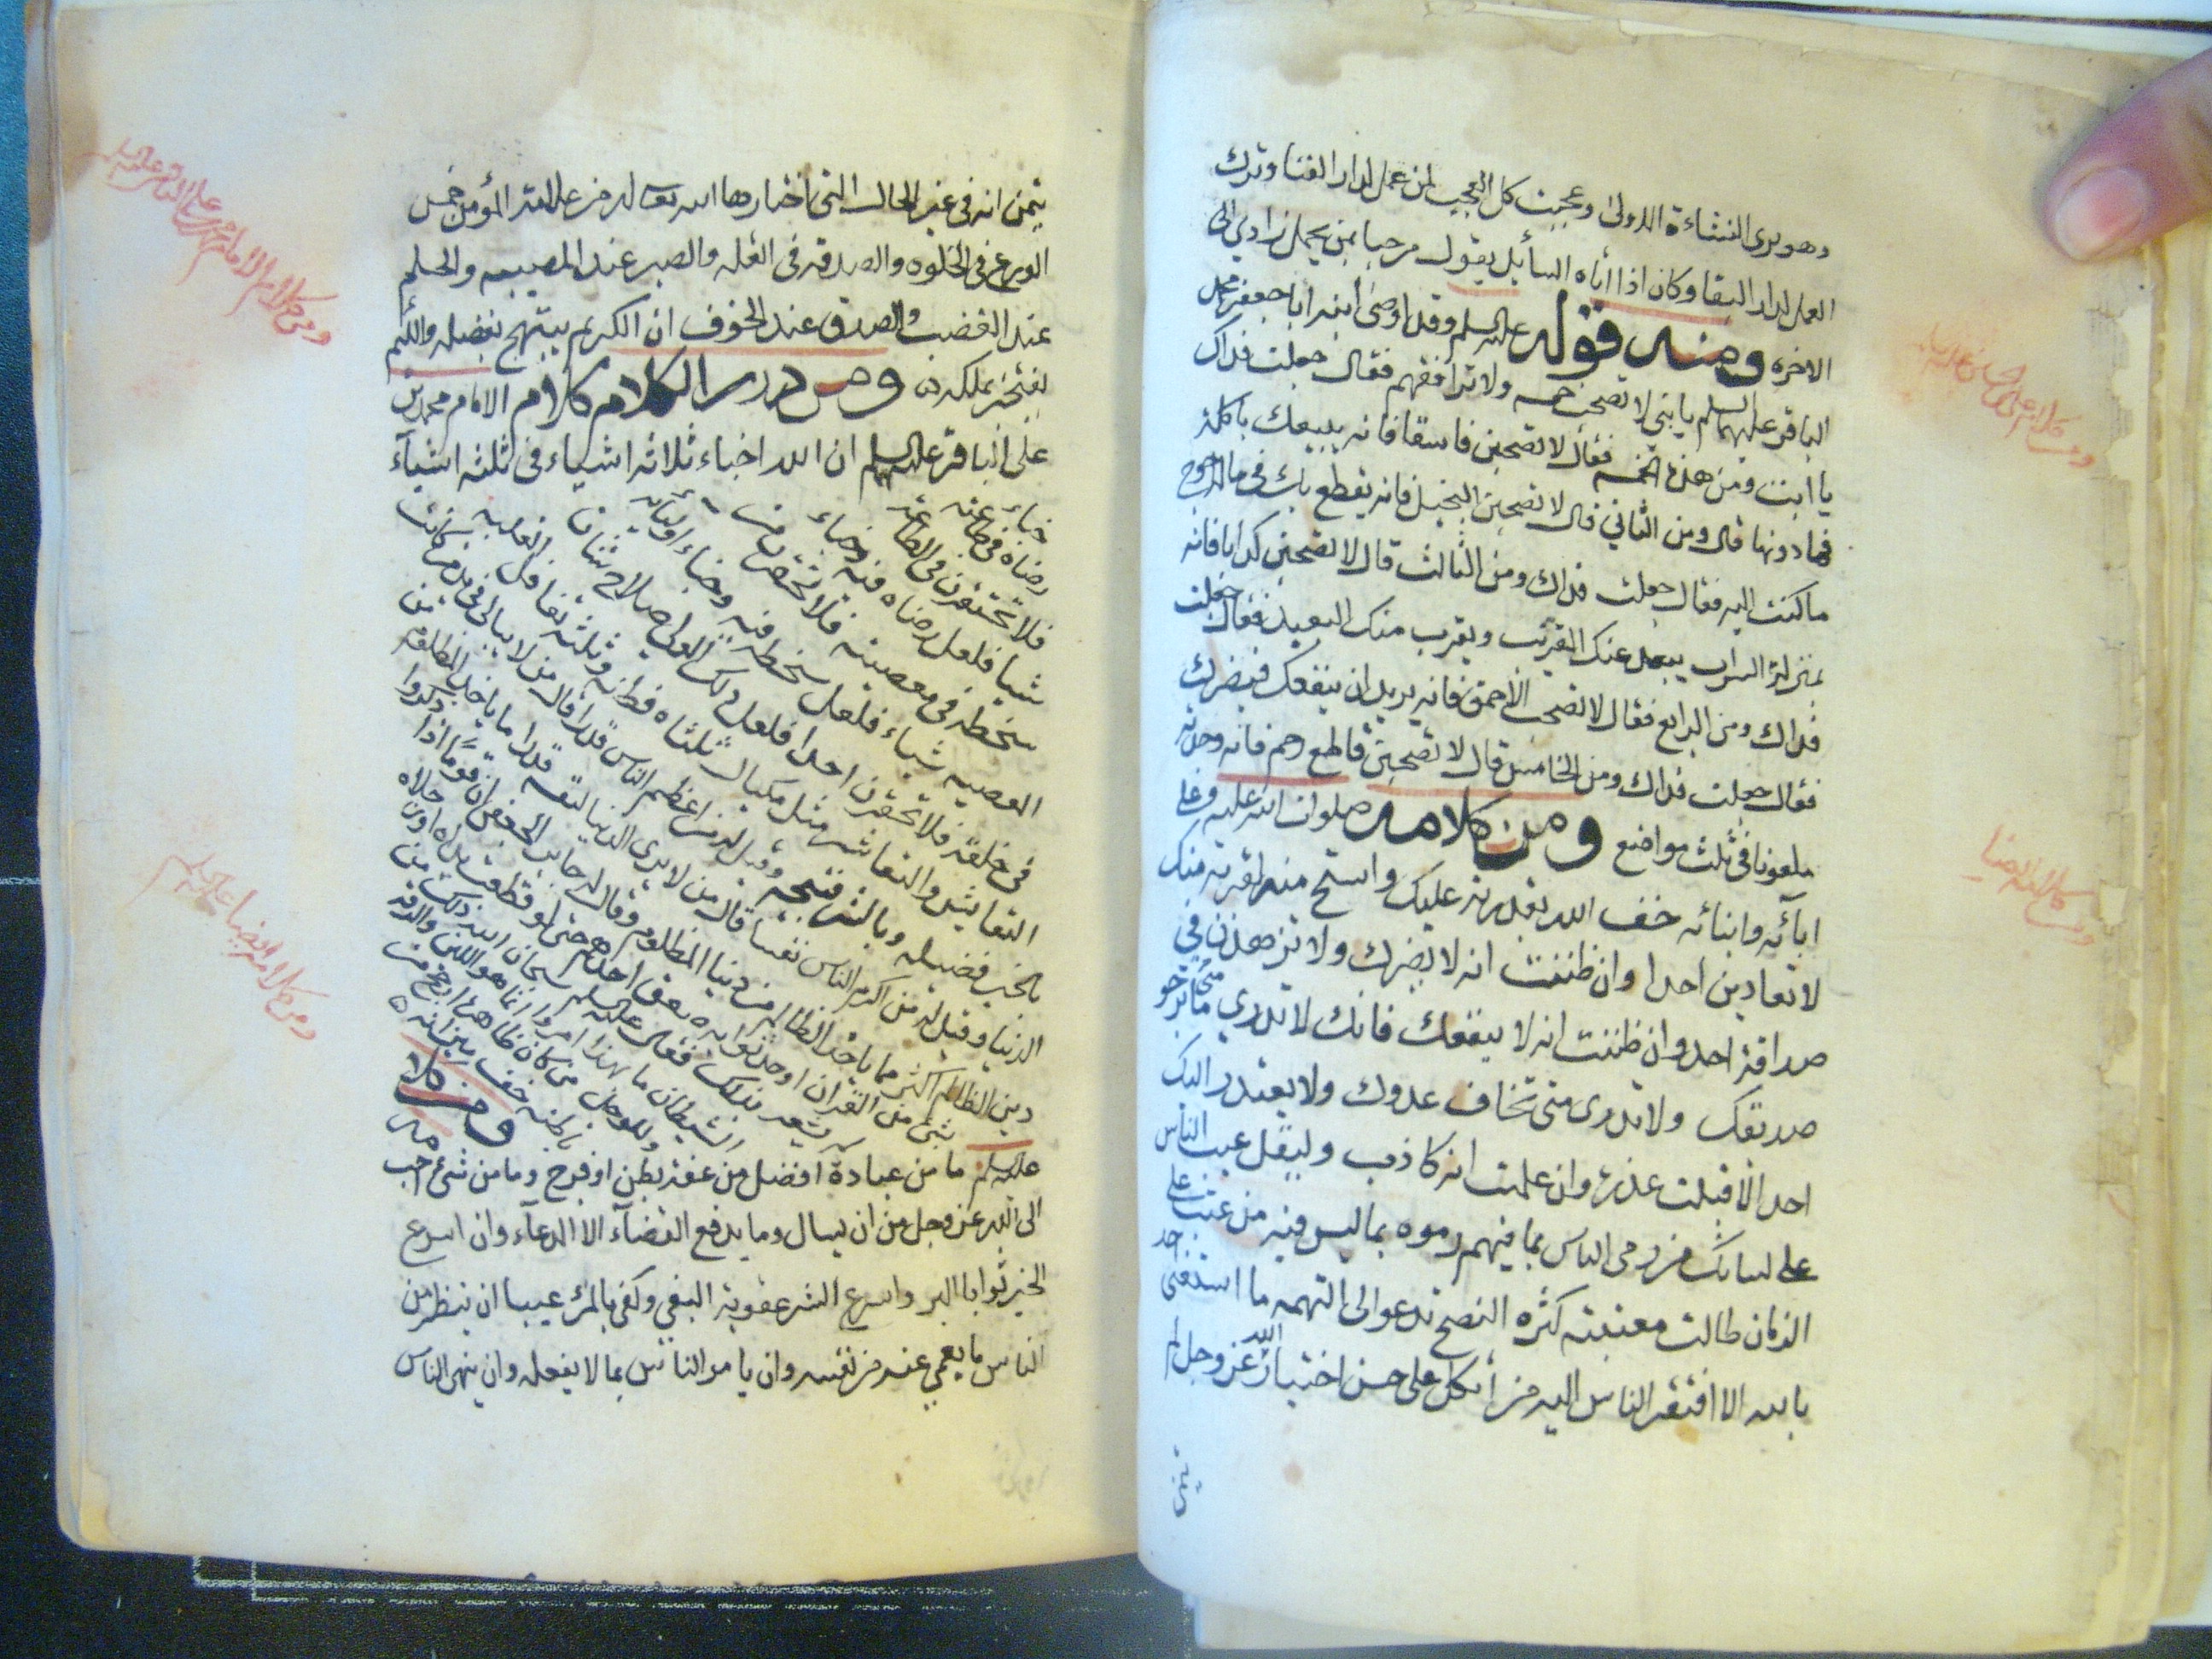 وهو يرى النشاءة الاولى وعجبت كل العجب لمن عمل لدار الفنا وترك
العمل لدار البقا وكان اذا أتاه السأيل يقول مرحبا بمن يحمل زادي الى
الاخره ومنه قوله عليه السلم وقد اوصى ابنه ابا جعفر محمد
الباقر عليهما السلم يا بني لا تصحبن خمسه ولا ترافقهم فقال جعلت فداك
يا ابت ومن هذه الخمسه فقال لا تصحبن فاسقا فانه يبيعك باكله
فما دونها قال ومن الثاني قال لا تصحبن البخيل فانه يقطع بك في ماله احوج
ما كنت اليه فقال جعلت فداك ومن الثالث قال لا تصحبن كذابا فانه
بمنزلة السراب يبعد عنك القريب ويقرب منك البعيد فقال جعلت
فداك ومن الرابع فقال لا تصحب الاحمق فانه يريد ان ينفعك فيضرك
فقال جعلت فداك ومن الخامس قال لا تصحبن قاطع رحم فانه وجدته
ملعونا في ثلث مواضع ومن كلامه صلوات الله عليه وعلى
ابآئه وابنائه خف الله بقدرته عليك واستح منه لقربه منك
لا تعادين احدا وان ظننت انه لا يضرك ولا تزهدن في
صداقة احد وان ظننت انه لا ينفعك فانك لا تدري متى ترجو
صديقك ولا تدرى متى تخاف عدوك ولا يعتذر اليك
احد الا قبلت عذره وان علمت انه كاذب وليقل عيب الناس
على لسانك من رمى الناس بما فيهم رموه بما ليس فيه من عتب على
الزمان طالت معتبته كثره النصح تدعو الى التهمه ما استغنى احد
بالله الا افتقر الناس اليه من أتكل على حسن اختيار الله عز وجل لم
يتمن
ومن كلام الرضا
يتمن انه في غير الحال التى اختارها الله تعالى له من علامة المؤمن خمس
الورع في الخلوه والصدقه في القله والصبر عند المصيبه والحلم
عند الغضب والصدق عند الخوف ان الكريم يبتهج بفضله واللئيم
يفتخر بملكه ومن درر الكلام كلام الامام محمد بن
على الباقر عليهما السلم ان الله اخباء ثلاثه اشياء في ثلثه اشيآء
خباء رضاه في طاعته
فلا تحتقرن من الطاعه
شيا فلعل رضاه فيه وخباء
سخطه في معصيته فلا تحقرن من
المعصيه شياء فلعل سخطه فيه وخباء اوليآئه
في خلقه فلا تحقرن احدا فلعل ذلك الولي صلاح شان
التعايش والتعاشر مثل مكيال ثلثاه فطانه وثلثه تغافل الغلبه
بالخير فضيله وبالشر قبيحه وقيل له من اعظم الناس قدرا قال من لا يبالى في يد من كانت
الدنيا وقيل له من اكرم الناس نفسا قال من لا يرى الدنيا لنفسه قدرا ما ياخذ المظلوم من
دين الظالم اكثر مما ياخذ الظالم من دنيا المظلوم وقال له جابر الجعفي ان قوما اذا ذكروا
بشئ من القران او حدثوا به صعق احدهم حتى لو قطعت يداه او رجلاه
لم يشعر بذلك فقال عليه السلم سبحان الله ذلك من
الشيطان ما بهذا امروا انما هو اللين والرقه
والوجل من كان ظاهره ارجح من
باطنه خف ميزانه
ومن كلامه
عليه السلم ما من عبادة افضل من عفة بطن او فرج وما من شئ احب
الى الله عز وجل من ان يسال وما يدفع القضآء الا الدعآء وان اسرع
الخير ثوابا البر واسرع الشر عقوبة البغي وكفى بالمرء عيبا ان ينظر من
الناس ما يعمي عنه من نفسه وان يامر الناس بما لا يفعله وان ينهى الناس